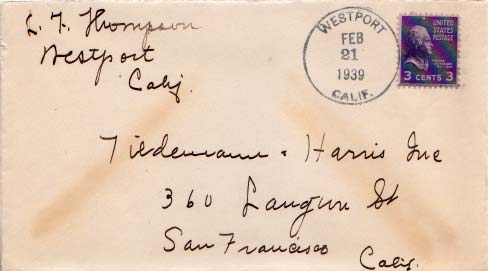 L. F. Thompson
Westport
Calif.
WESTPORT
FEB
21
1939
CALIF.
UNITED
STATES
POSTAGE
3 CENTS 3
Tiedemann & Harris Inc
360 Langton St
San Francisco
Calif.